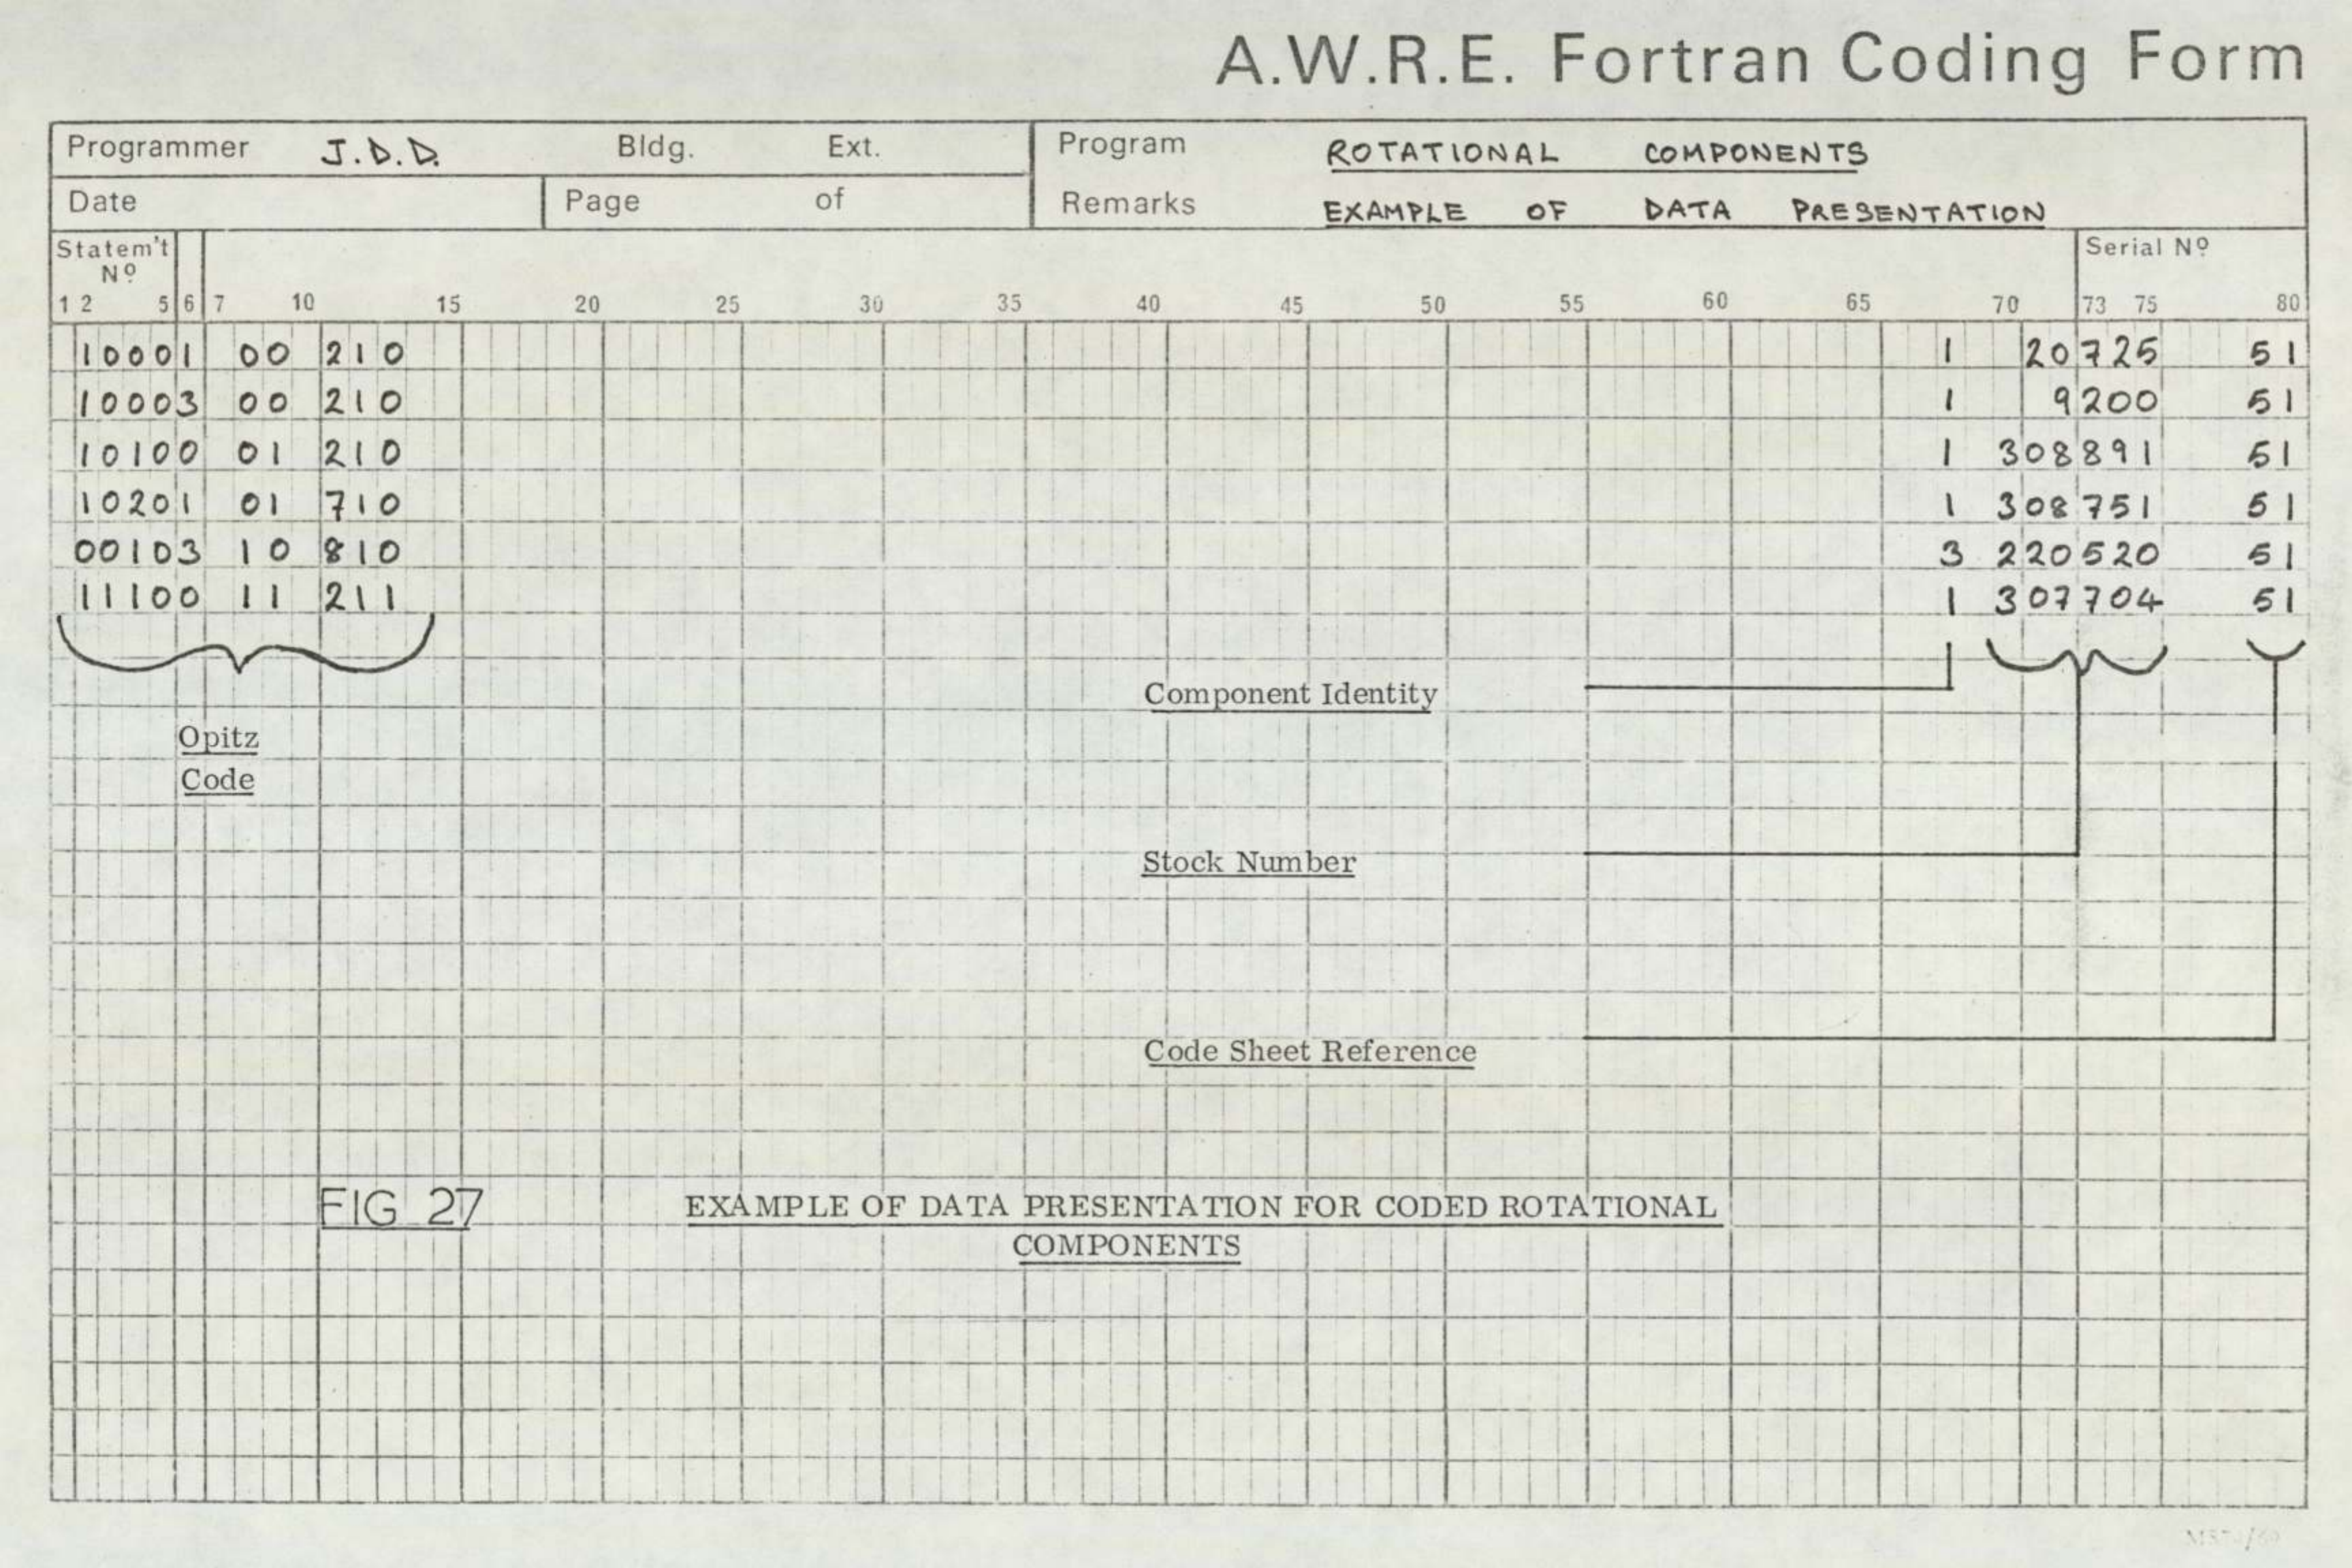 A.W.R.E. Fortran Coding Form
Programmer J.D.D. Bldg. Ext. Program ROTATIONAL COMPONENTS
Date Page of Remarks EXAMPLE OF DATA PRESENTATION
Statem't Serial Nº
Nº
1 2 5 6 7 10 15 20 25 30 35 40 45 50 55 60 65 70 73 75 80
10001 00 210 1 20725 51
10003 00 210 1 9200 51
10100 01 210 1 308891 51
10201 01 710 1 308751 51
00103 10 810 3 220520 51
11100 11 211 1 307704 51
Component Identity
Opitz
Code
Stock Number
Code Sheet Reference
FIG 27 EXAMPLE OF DATA PRESENTATION FOR CODED ROTATIONAL
COMPONENTS